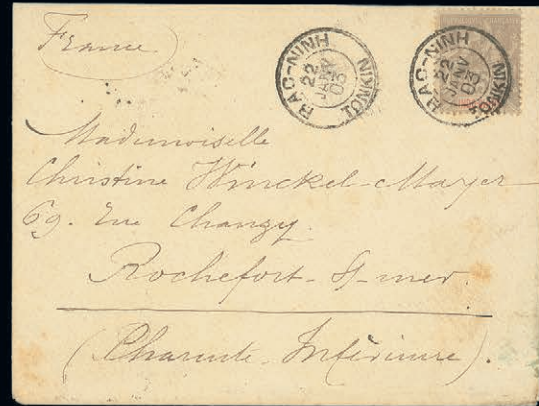 France
BAC-NINH
22
JANV
03
TONKIN
BAC-NINH
22
JANV
03
TONKIN
Mademoiselle
Christine Winckel-Mayer
69. Rue Chanzy.
Rochefort-s/-mer.
(Charente-Inférieure).